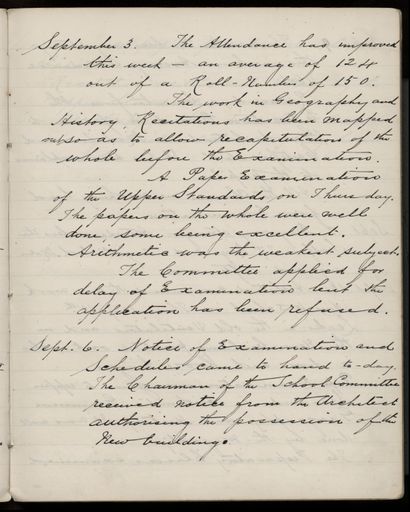 September 3. The Attendance has improved
this week — an average of 124
out of a Roll-Number of 150.
The work in Geography, and
History, Recitations has been mapped
out so as to allow recapitulation of the
whole before the Examination.
A Paper Examination
of the Upper Standards on Thursday.
The papers on the whole were well
done some being excellent.
Arithmetic was the weakest subject.
The Committee applied for
delay of Examination but the
application has been refused.
Sept. 6. Notice of Examination and
Schedules came to hand to-day.
The Chairman of the School Committee
received notice from the Architect
authorising the possession of the
New building.